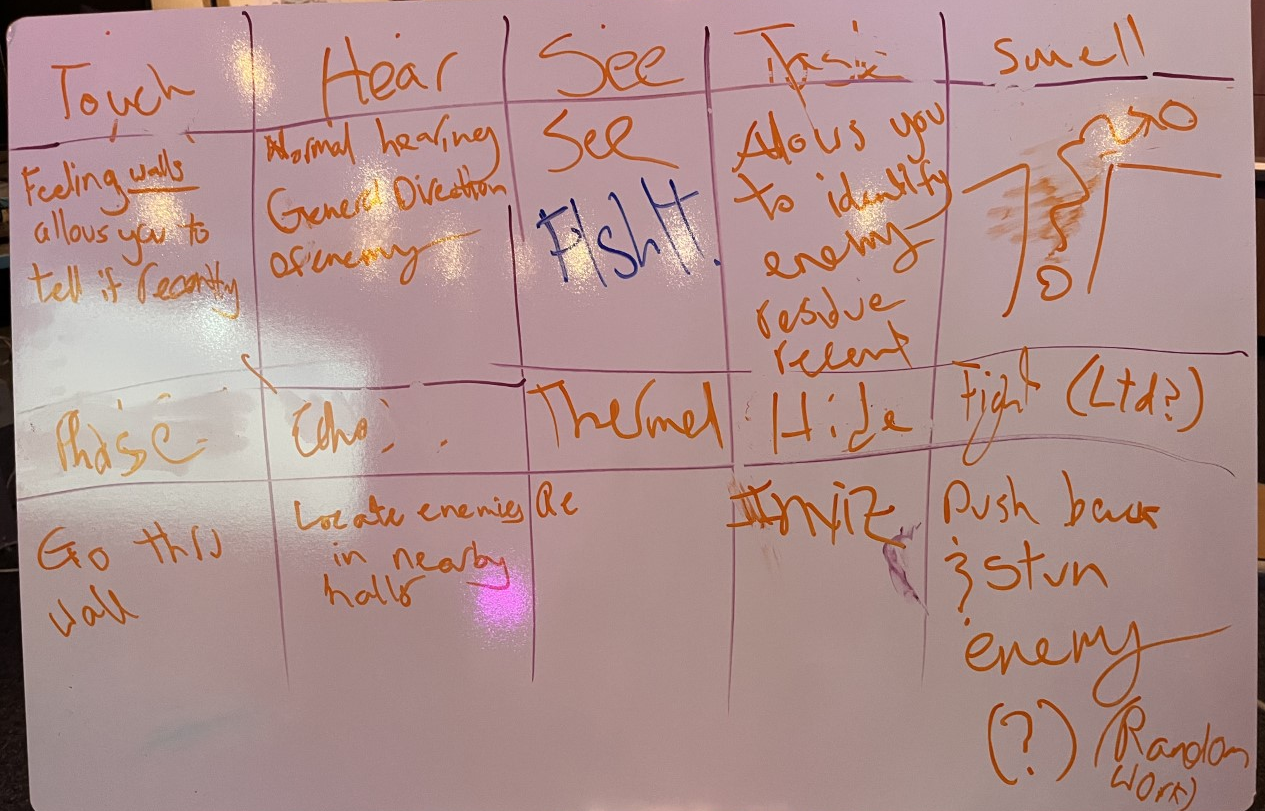 Touch
Hear
See
Smell
Feeling walls
allows you to
tell if recently
Normal hearing
General Direction
of enemy
See
FISh!!.
Allows you
to identify
enemy
residue
recent
Phase
Echo
Thermal
Hide
Fight (Ltd?)
Go thru
wall
Locate enemies
in nearby
halls
Re
Inviz
Push back
& stun
enemy
(?) (Random
work)